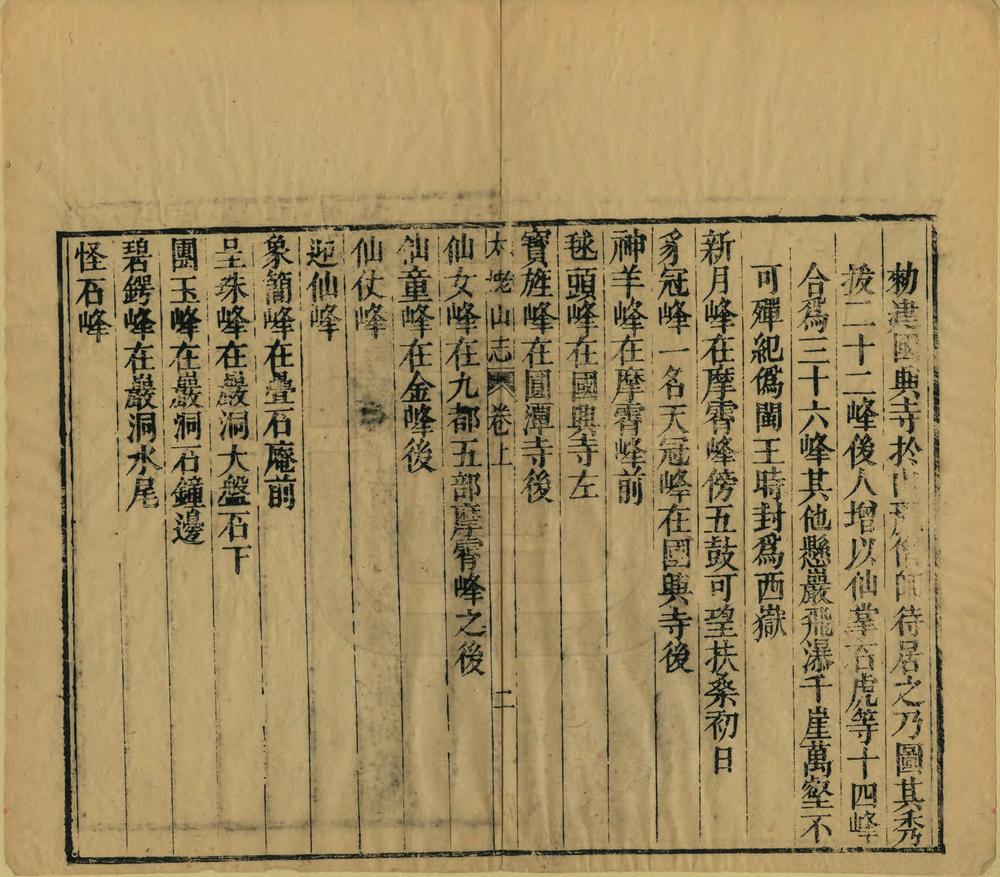 勑建國興寺於此 僧師待居之乃圖其秀
拔二十二峰後人增以仙掌石虎等十四峰
合爲三十六峰其他懸巖飛瀑千崖萬壑不
可殫紀僞閩王時封爲西嶽
新月峰在摩霄峰傍五鼓可望扶桑初日
豸冠峰一名天冠峰在國興寺後
神羊峰在摩霄峰前
毬頭峰在國興寺左
寶旌峰在圓潭寺後
太姥山志 卷上 二
仙女峰在九都五部摩霄峰之後
仙童峰在金峰後
仙仗峰
迎仙峰
象簡峰在疊石庵前
呈珠峰在巖洞大盤石下
團玉峰在巖洞石鐘邊
碧鍔峰在巖洞水尾
怪石峰